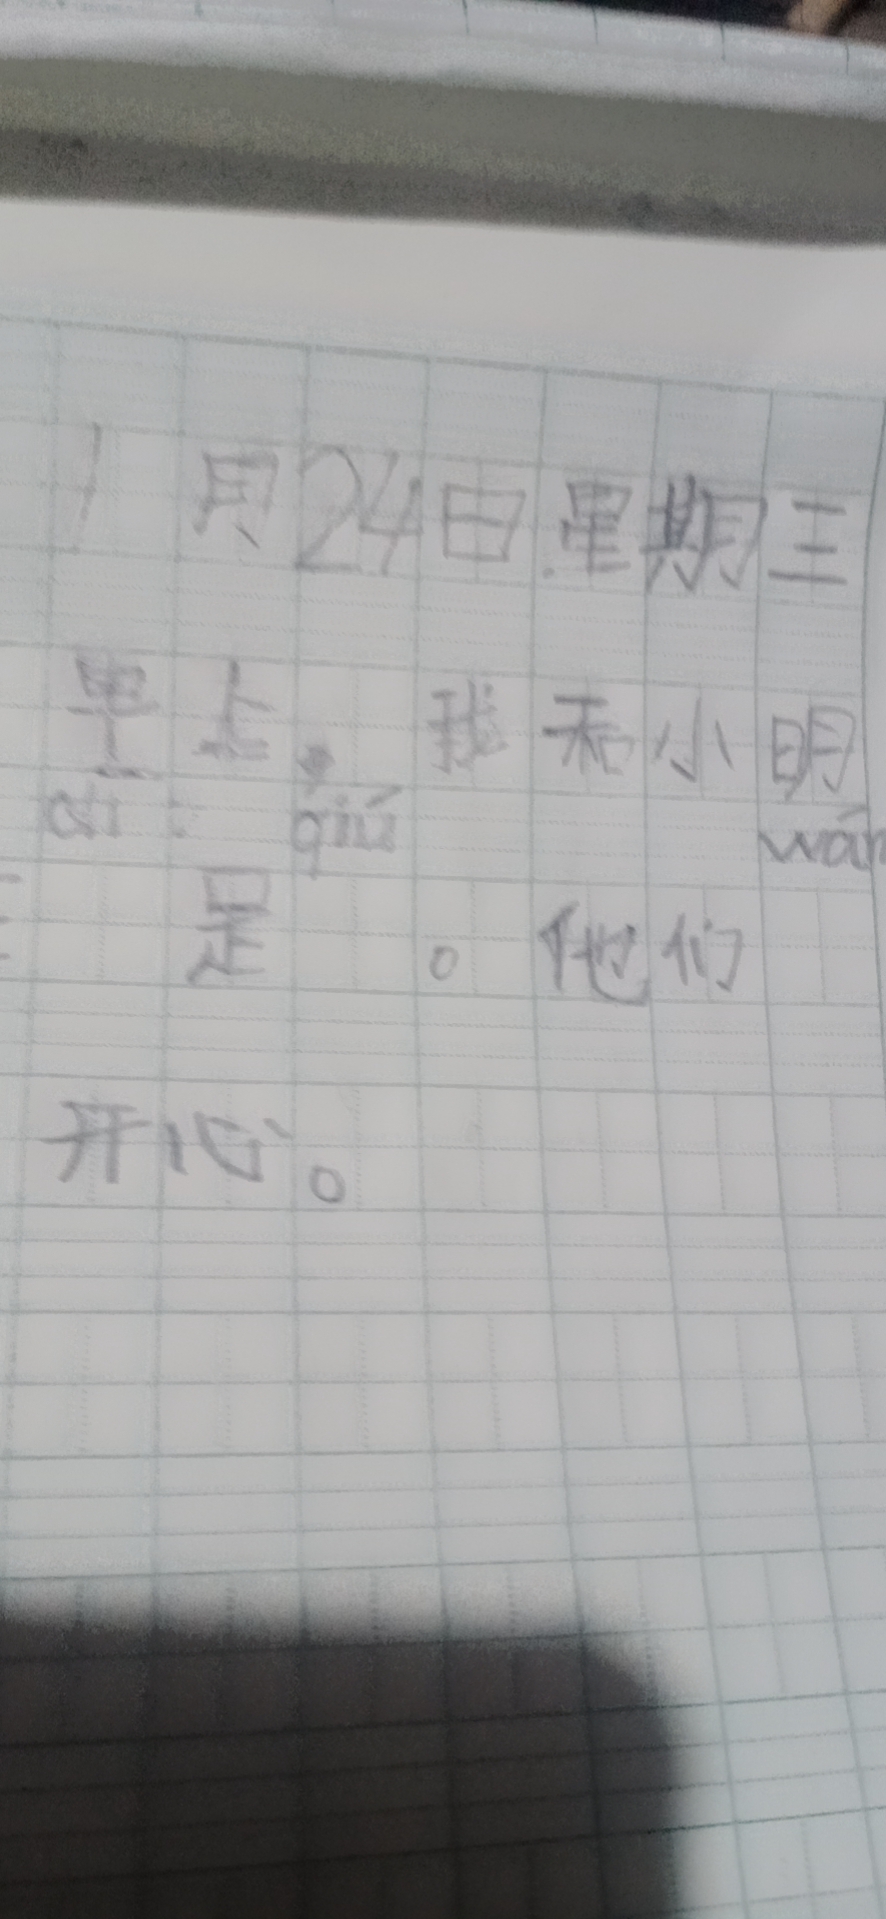 1月24日星期三
早上,我和小明
qiú wán
是。他们
开心。